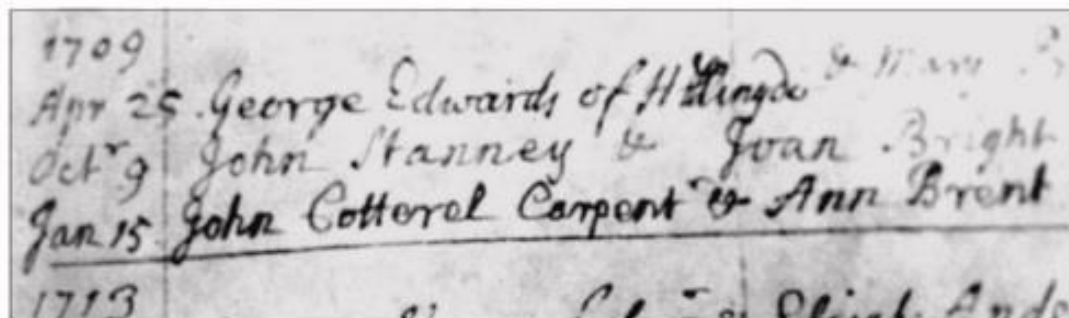 1709
Apr 25 George Edwards of & Mary
Octr 9 John Stanney & Joan Bright
Jan 15 John Cotterel Carpentr & Ann Brent
1713